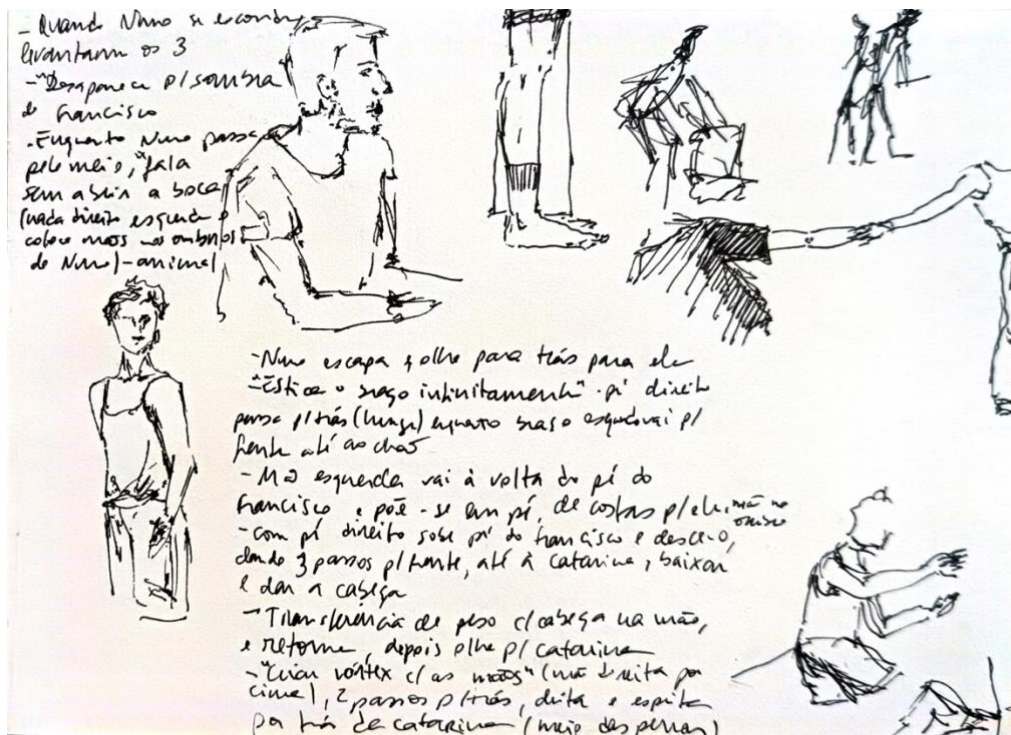 - Quando Nuno se esconde,
levantam os 3
- "Desaparece p/ sombra
do Francisco
- Enquanto Nuno passa
pelo meio, "fala
sem abrir a boca"
(mão direita esquerda e
coloco mãos nos ombros
de Nuno) - animal
- Nuno escapa e olhe para trás para ele
- "Estica o braço infinitamente" - pé direito
passa p/ trás (lunge) enquanto braço esquerdo vai p/
frente até ao chão
- Mão esquerda vai à volta do pé do
Francisco e põe-se em pé, de costas p/ ele, mão no
ombro
- com pé direito sobe pé do Francisco e desce-o,
dando 3 passos p/ frente, até à Catarina, baixar
e dar a cabeça
- Transferência de peso c/ cabeça na mão,
e retorna, depois olhe p/ Catarina
- "Criar vórtex c/ as mãos" (mão direita por
cima), 2 passos p/ trás, deita e espreita
por trás de Catarina (meio das pernas)